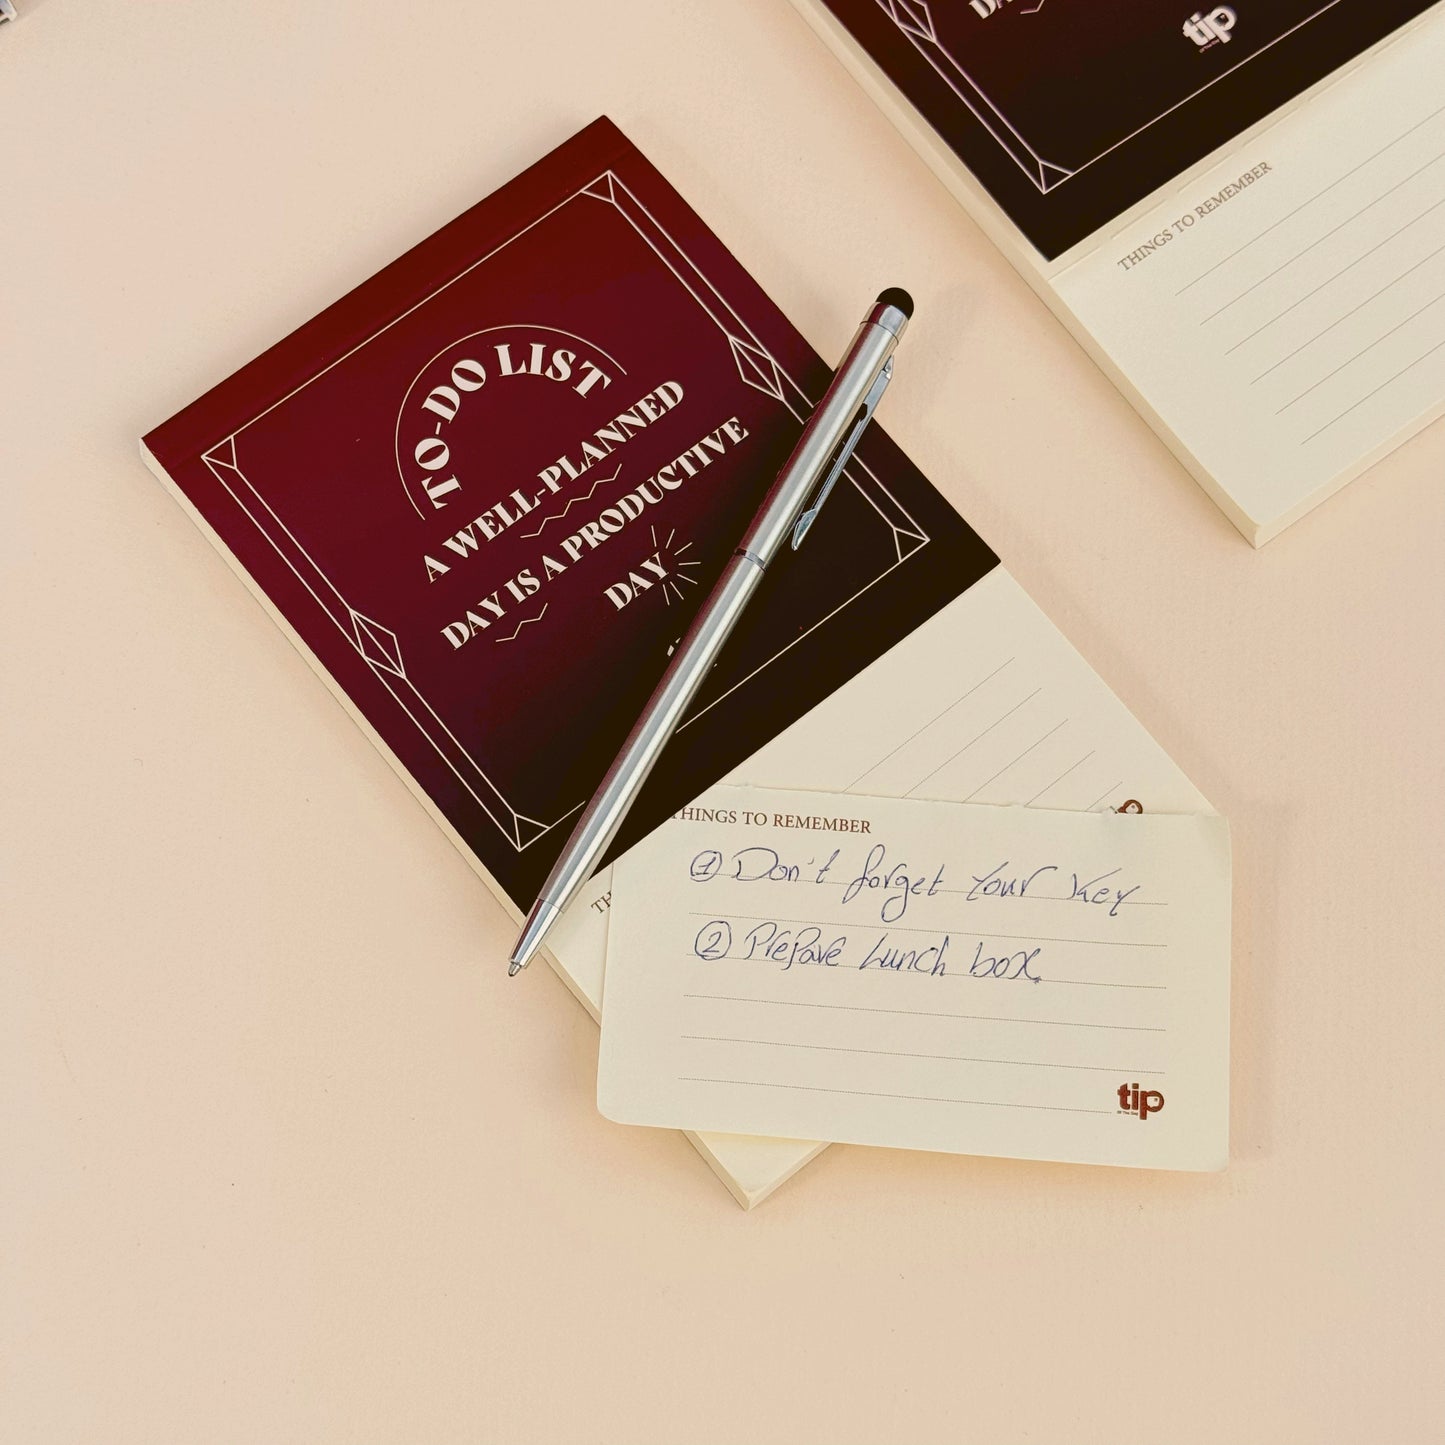 TO-DO LIST
A WELL-PLANNED
DAY IS A PRODUCTIVE
DAY
tip
THINGS TO REMEMBER
THINGS TO REMEMBER
① Don't forget Your Key
② PrePare Lunch box.
tip